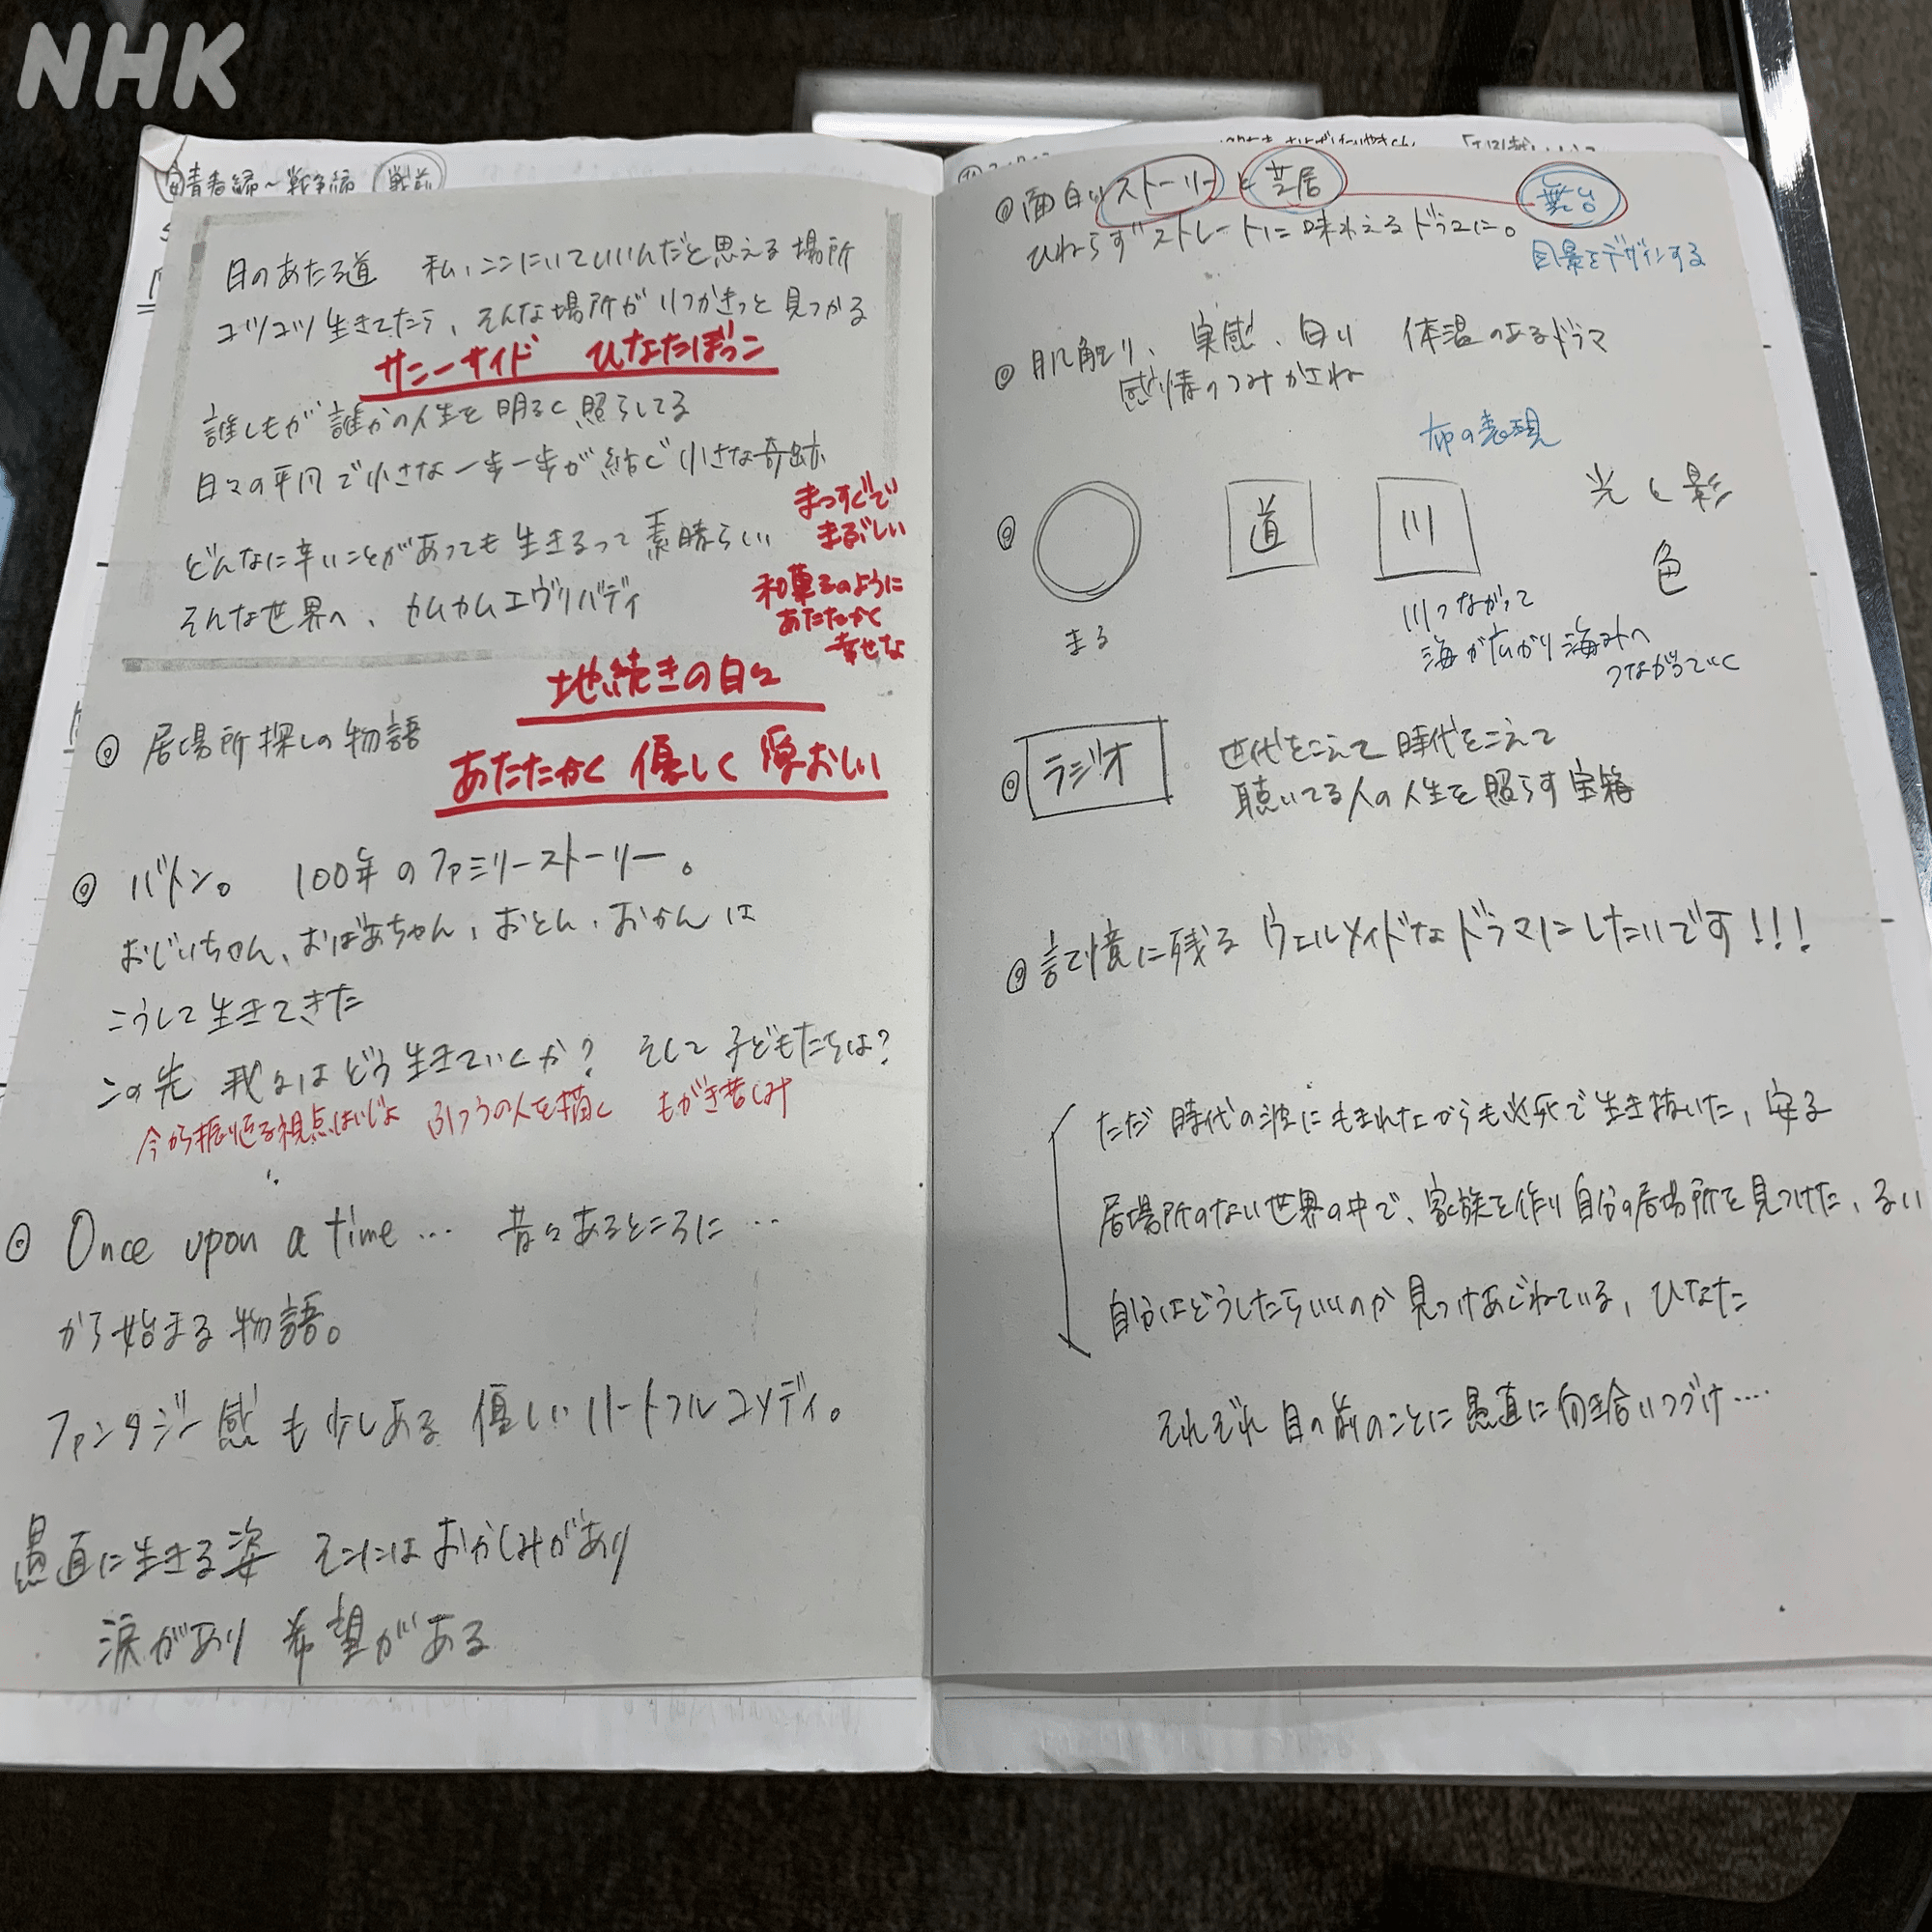 NHK
戦前
日のあたる道 私、ここにいていいんだと思える場所
コツコツ生きてたら、そんな場所がいつかきっと見つかる
サニーサイド ひなたぼっこ
誰しもが誰かの人生を明るく照らしてる
日々の平凡で小さな一歩一歩が結ぶ小さな奇跡
まっすぐで
まぶしい
どんなに辛いことがあっても生きるって素晴らしい
和菓子のように
あたたかく
幸せな
そんな世界へ、カムカムエヴリバディ
地続きの日々
◎居場所探しの物語
あたたかく 優しく 愛おしい
◎バトン。 100年のファミリーストーリー。
おじいちゃん、おばあちゃん、おとん、おかんは
こうして生きてきた
この先 我々はどう生きていくか? そして子どもたちは?
今から振り返る視点はいじょ ふつうの人を描く もがき苦しみ
◎Once upon a time… 昔々あるところに…
から始まる物語。
ファンタジー感も少しある優しいハートフルコメディ。
愚直に生きる姿 そこにはおかしみがあり
涙があり 希望がある
◎面白いストーリーと芝居 舞台
ひねらずストレートに味わえるドラマに。
風景をデザインする
◎肌触り、実感、匂い 体温のあるドラマ
感情のつみかさね
布の表現
◎ 道 川 光と影
色
まる
川つながって
海が広がり海外へ
つながっていく
◎ラジオ 世代をこえて時代をこえて
聴いてる人の人生を照らす宝箱
◎記憶に残るウェルメイドなドラマにしたいです!!!
ただ時代の波にもまれながらも必死で生き抜いた、安子
居場所のない世界の中で、家族を作り自分の居場所を見つけた、るい
自分はどうしたらいいのか見つけあぐねている、ひなた
それぞれ目の前のことに愚直に向き合いつづけ….